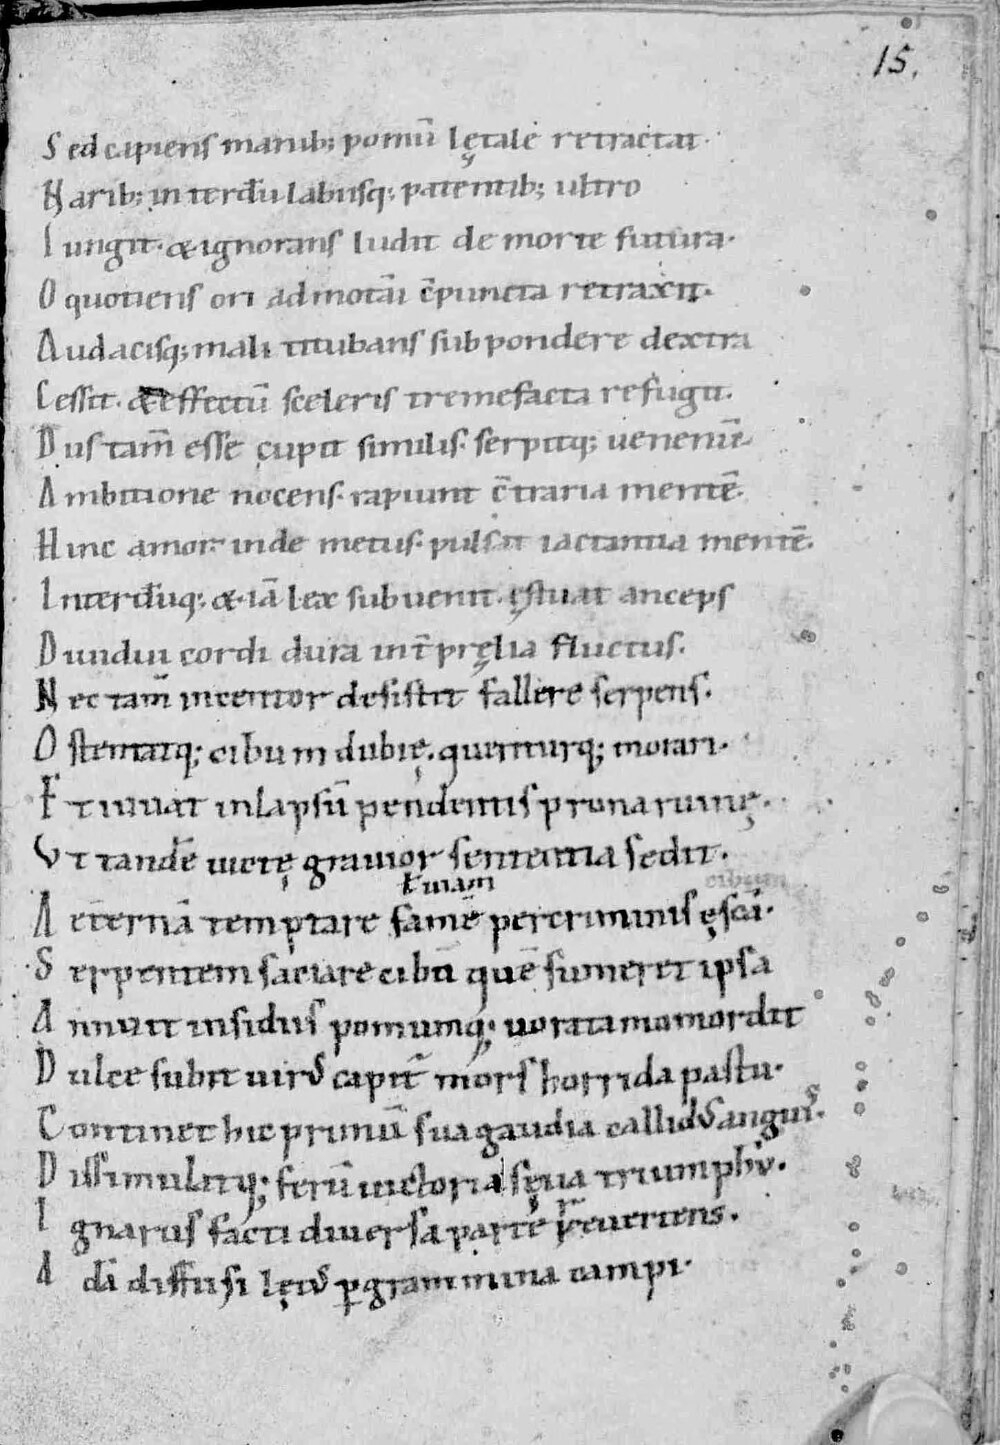 15.
Sed capiens manib; pomū lętale retractat.
Narib; interdū labiisq; patentib; ultro
Iungit. & ignorans ludit de morte futura.
O quotiens ori admotā c̄puncta retraxit.
Audacisq; mali titubans sub pondere dextra
Cessit. & effectū sceleris tremefacta refugit.
Diis tam̄ esse cupit similis. serpitq; uenenū.
Ambitione nocens. rapiunt c̄traria mentē.
Hinc amor. inde metus. pulsat iactantia mentē.
Interdūq; & iā lex subuenit. ęstuat anceps
Diuidui cordi dura int̄ pręlia fluctus.
Nec tam̄ incentor desistit fallere serpens.
Ostentatq; cibum dubię. queriturq; morari.
Et iuuat in lapsū pendentis prona ruinę.
Vt tandē uictę grauior sententia sedit.
ł uiam cibum
Aeternā temptare famē per criminis ęscā.
Serpentem saciare cibū quē sumeret ipsa
Annuit insidiis pomumq; uorata momordit
Dulce subit uirꝰ capit̄ mors horrida pastu.
Continet hic primū sua gaudia callidꝰ anguiſ.
Dissimulatq; ferū uictoria sęua triumphū.
Ignarus facti diuersa parte reuertens.
Adā diffusi lętꝰ ꝑ gramina campi.